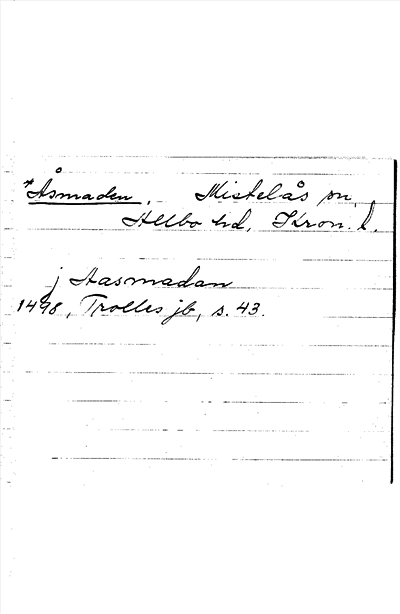 *Åsmaden. Mistelås sn,
Allbo hd, Kron. l.
j Aasmadan
1498, Trolles jb, s. 43.